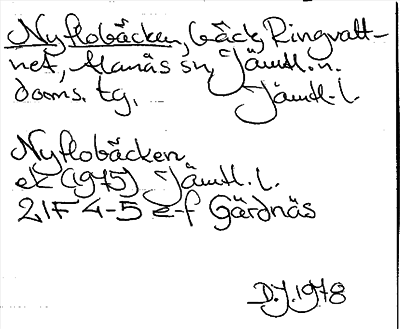 Nyflobäcken, bäck, Ringvatt-
net, Alanäs sn, Jämtl. n.
doms. tg. Jämtl. l.
Nyflobäcken
ek (1975) Jämtl. l.
21F 4-5 e-f Gärdnäs
D.J. 1978